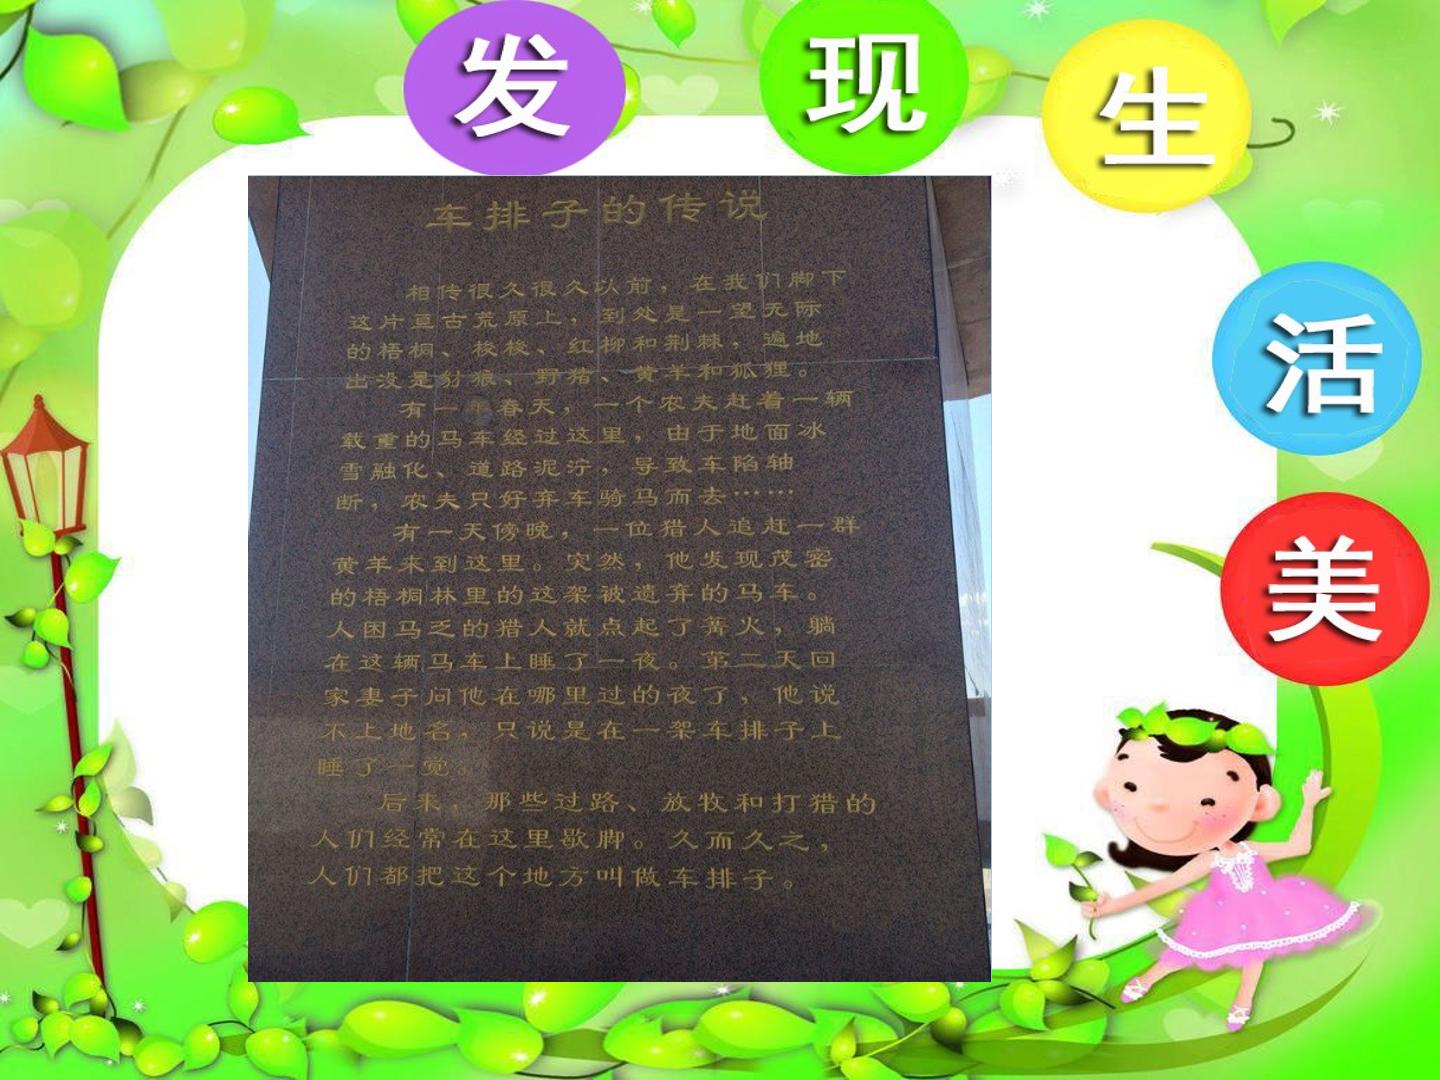 发现生活美
车排子的传说
相传很久很久以前，在我们脚下
这片亘古荒原上，到处是一望无际
的梧桐、梭梭、红柳和荆棘，遍地
出没是豺狼、野猪、黄羊和狐狸。
有一年春天，一个农夫赶着一辆
载重的马车经过这里，由于地面冰
雪融化、道路泥泞，导致车陷轴
断，农夫只好弃车骑马而去……
有一天傍晚，一位猎人追赶一群
黄羊来到这里。突然，他发现茂密
的梧桐林里的这架被遗弃的马车。
人困马乏的猎人就点起了篝火，躺
在这辆马车上睡了一夜。第二天回
家妻子问他在哪里过的夜了，他说
不上地名，只说是在一架车排子上
睡了一觉。
后来，那些过路、放牧和打猎的
人们经常在这里歇脚。久而久之，
人们都把这个地方叫做车排子。